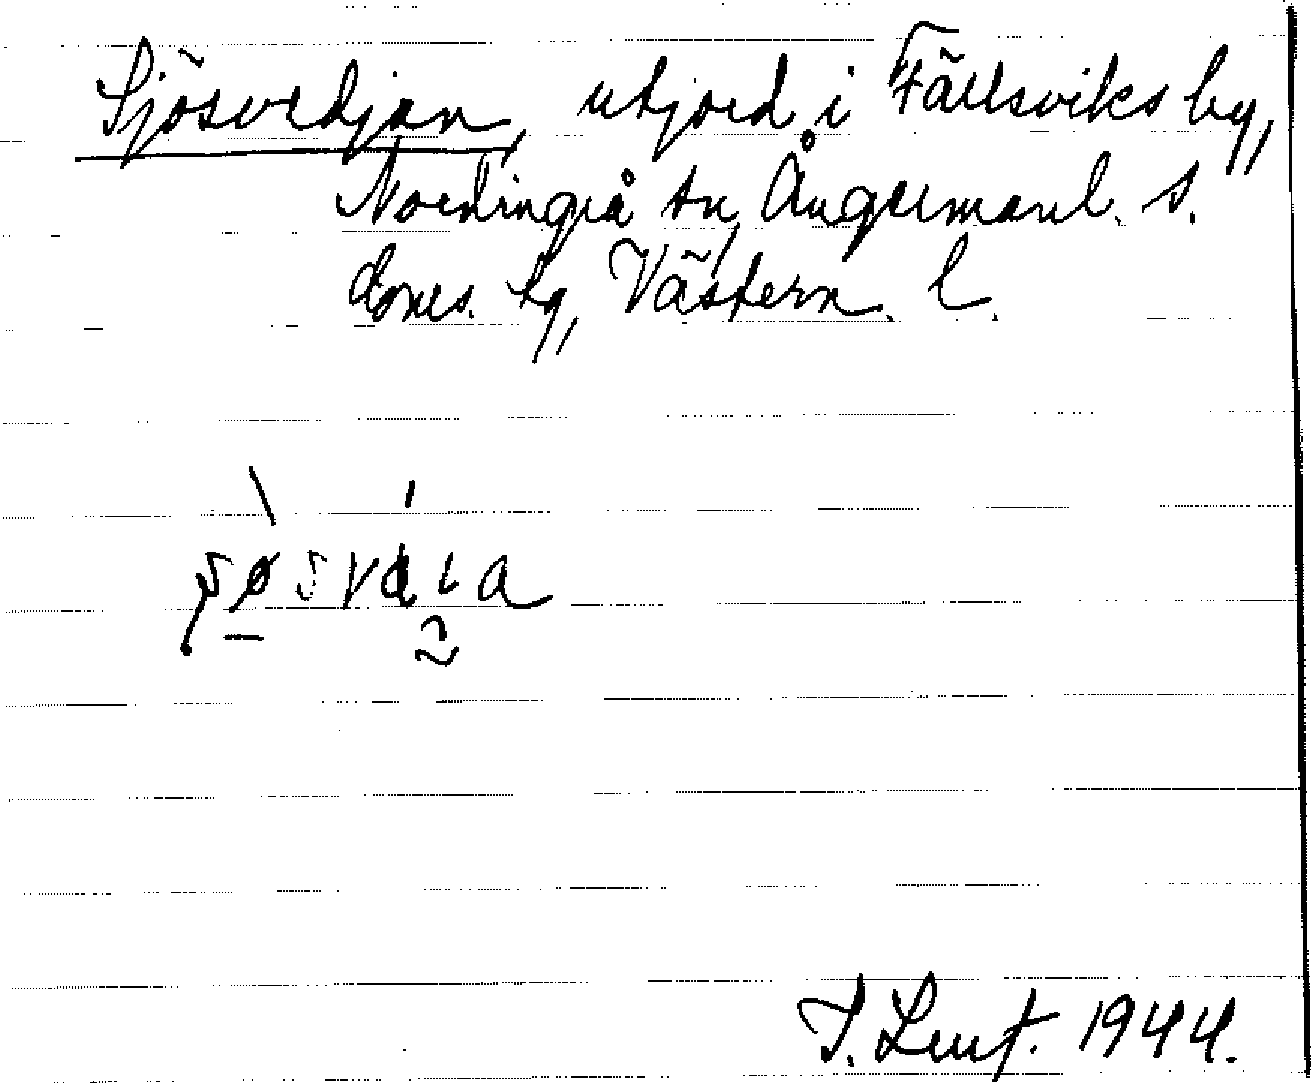 Sjösvedjan, utjord i Fällsviks by,
Nordingrå sn, Ångermanl. s.
doms. hg, Västern. l.
J. Lunf. 1944.